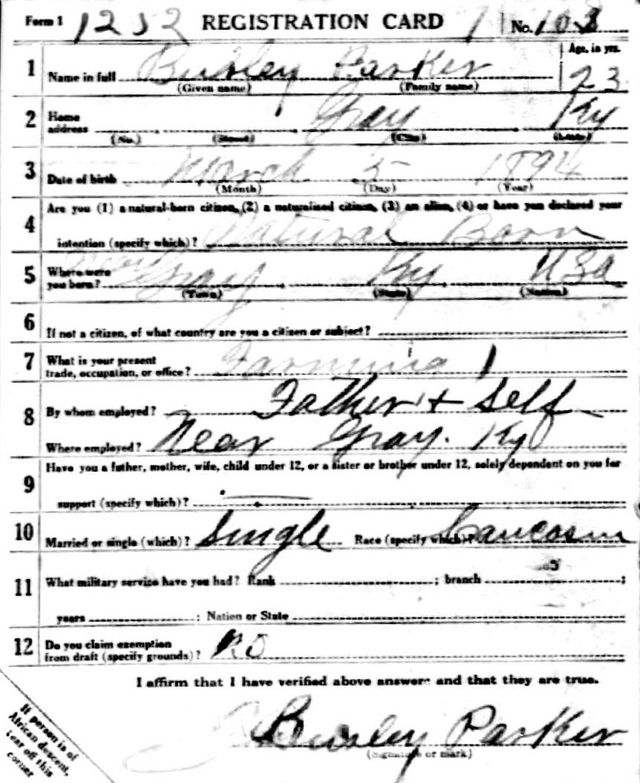 Form 1 1252 REGISTRATION CARD No. 103
1 Name in full Burley Parker Age, in yrs. 23
(Given name) (Family name)
2 Home address Gray Ky
(No.) (Street) (City) (State)
3 Date of birth March 5 1894
(Month) (Day) (Year)
4 Are you (1) a natural-born citizen, (2) a naturalized citizen, (3) an alien, (4) or have you declared your
intention (specify which)? Natural Born
5 Where were you born? Near Gray Ky USA
(Town) (State) (Nation)
6 If not a citizen, of what country are you a citizen or subject?
7 What is your present trade, occupation, or office? Farming
8 By whom employed? Father + Self
Where employed? Near Gray. Ky
9 Have you a father, mother, wife, child under 12, or a sister or brother under 12, solely dependent on you for
support (specify which)?
10 Married or single (which)? Single Race (specify which)? Caucasin
11 What military service have you had? Rank ; branch ;
years ; Nation or State
12 Do you claim exemption from draft (specify grounds)? No
I affirm that I have verified above answers and that they are true.
Burley Parker
(Signature or mark)
If person is of
African descent,
tear off this
corner